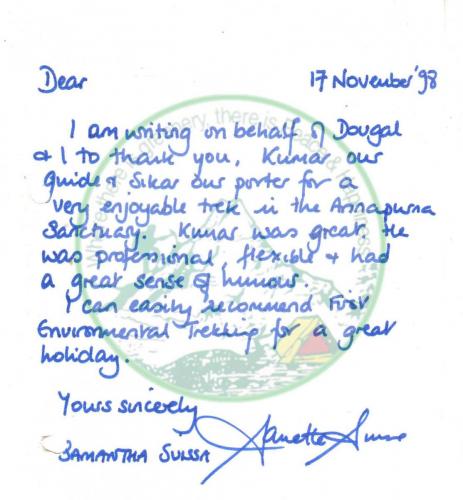 Dear
17 November '98
I am writing on behalf of Dougal
& I to thank you, Kumar our
guide & Sikar our porter for a
very enjoyable trek in the Annapurna
Sanctuary. Kumar was great. He
was professional, flexible & had
a great sense of humour.
I can easily recommend First
Environmental Trekking for a great
holiday.
Yours sincerely
SAMANTHA SUISSA
there is Peace & Happiness